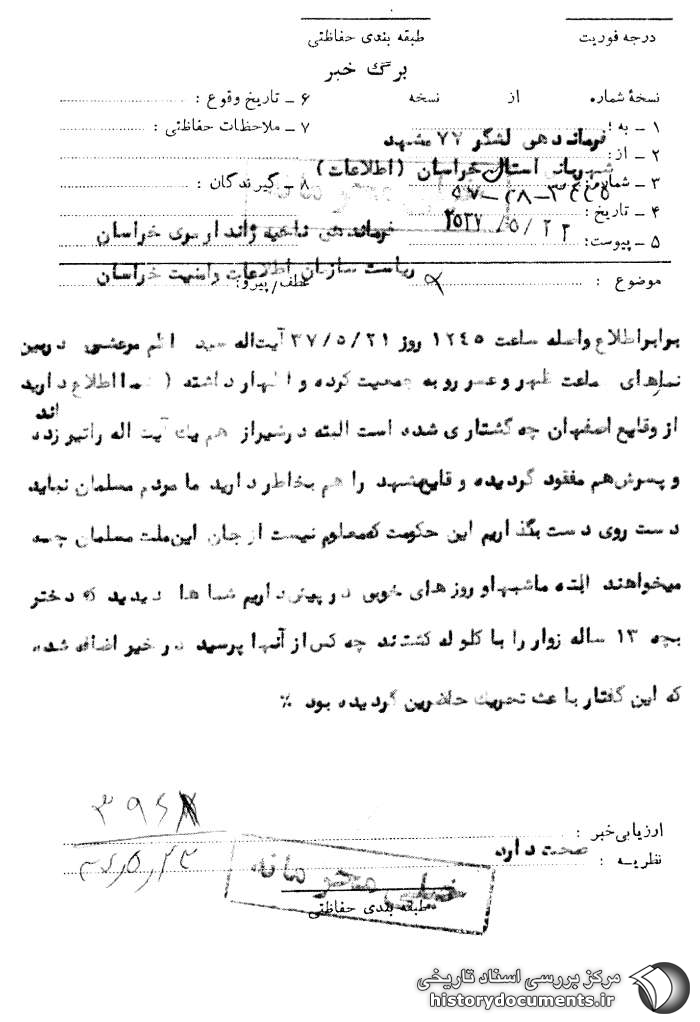 درجه فوریت
طبقه بندی حفاظتی
برگ خبر
نسخهٔ شماره از نسخه
۱ ـ به : فرماندهی لشگر ۷۷ مشهد
۲ ـ از : شهربانی استان خراسان (اطلاعات)
۳ ـ شماره :
۴ ـ تاریخ : ۲۵۳۷/۵/۲۲
۵ ـ پیوست :
۶ ـ تاریخ وقوع :
۷ ـ ملاحظات حفاظتی :
۸ ـ گیرندگان :
فرماندهی ناحیه ژاندارمری خراسان
ریاست سازمان اطلاعات وامنیت خراسان
عطف/پیرو:
موضوع :
برابراطلاع واصله ساعت ۱۲٤٥ روز ۳۷/۵/۲۱ آیت‌اله سید مرعشی دربین
نمازهای جماعت ظهر و عصر رو به جمعیت کرده و اظهار داشته ( شما اطلاع دارید
اند
از وقایع اصفهان چه گشتاری شده است البته درشیراز هم یك آیت اله راتیر زده
و پسرش هم مفقود گردیده و قایع مشهد را هم بخاطر دارید ما مردم مسلمان نباید
دست روی دست بگذاریم این حکومت که معلوم نیست از جان این ملت مسلمان چه
میخواهند البته ماشبهاو روزهای خوبی در پیش داریم شما ها دیدید که دختر
بچه ۱۳ ساله زوار را با گلوله کشتند چه کس از آنها پرسید در خبر اضافه شده
که این گفتار باعث تحریك حاضرین گردیده بود ٪
ارزیابی خبر :
نظریه : صحت دارد
خیلی محرمانه
طبقه بندی حفاظتی
مرکز بررسی اسناد تاریخی
historydocuments.ir